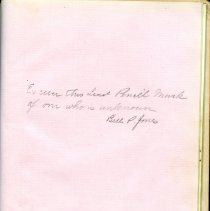 Excuse this Lead Pencil Mark
of one who is unknown
Bill P Jones